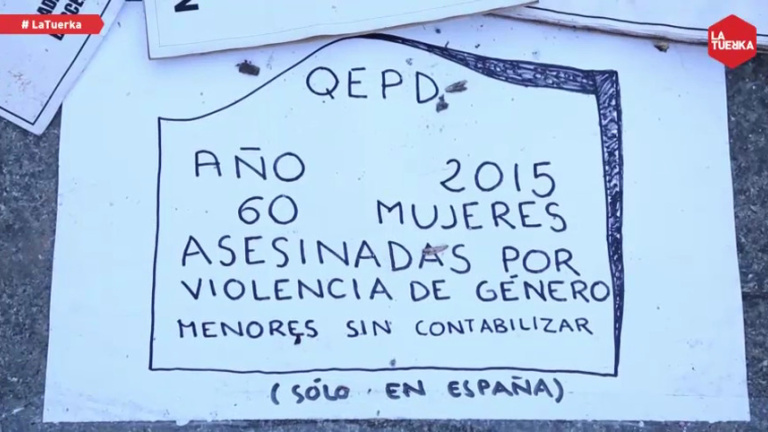 # LaTuerka
LA
TUERKA
QEPD
AÑO 2015
60 MUJERES
ASESINADAS POR
VIOLENCIA DE GÉNERO
MENORES SIN CONTABILIZAR
(SÓLO EN ESPAÑA)